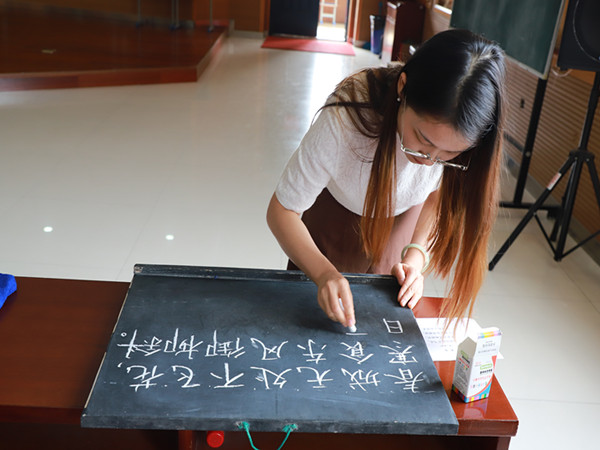 春城无处不飞花，
寒食东风御柳斜。
日